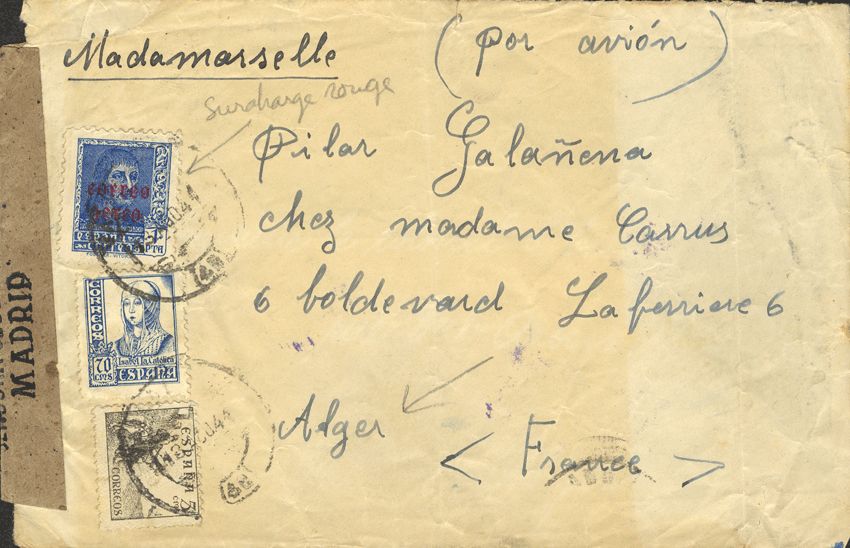 Madamarselle
(por avión)
surcharge rouge
Pilar Galañena
chez madame Carrus
6 boldevard Laferriere 6
Alger
< France >
correo
aereo
CORREOS
70
CTS
Isabel la Católica
ESPAÑA
ESPAÑA
5
CORREOS
MADRID